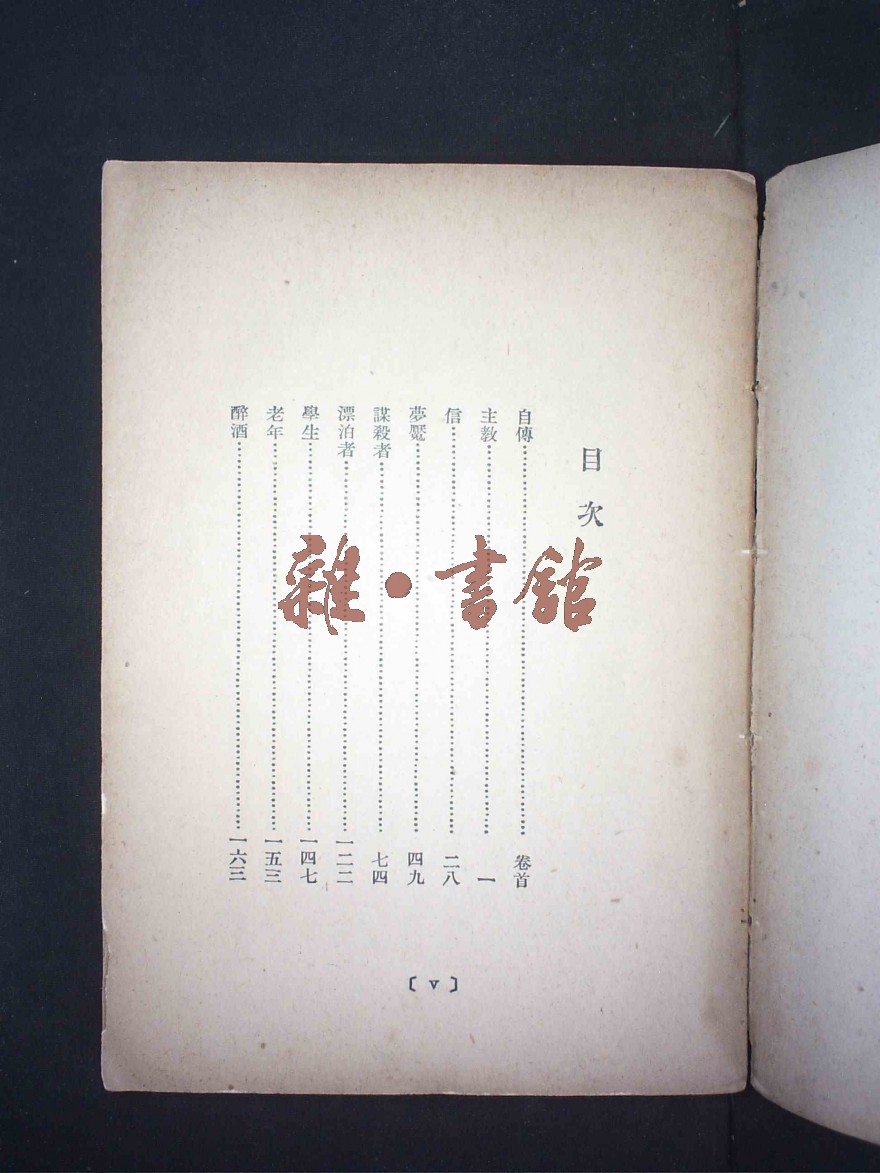 目次
自傳……卷首
主教……一
信……二八
夢魘……四九
謀殺者……七四
漂泊者……一二二
學生……一四七
老年……一五三
醉酒……一六三
〔v〕
雜·書館